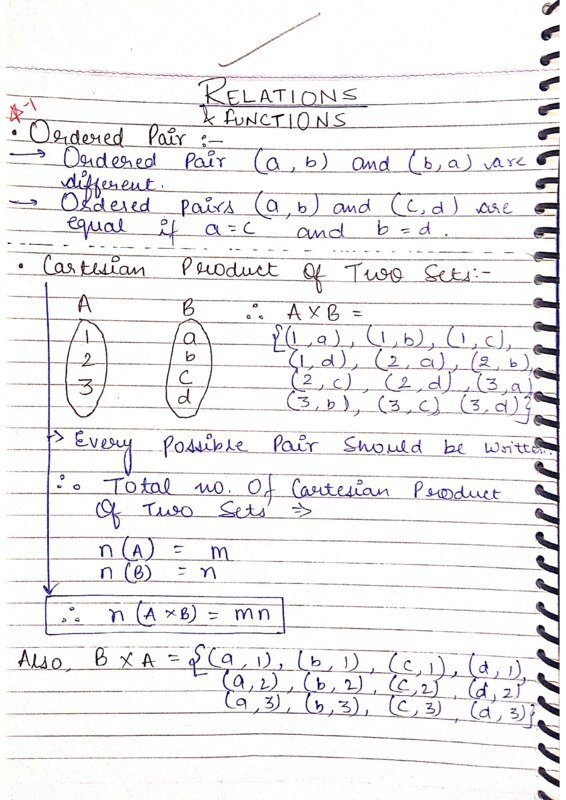 RELATIONS
& FUNCTIONS
• Ordered Pair :-
→ Ordered Pair (a, b) and (b, a) are
different.
→ Ordered pairs (a, b) and (c, d) are
equal if a = c and b = d.
• Cartesian Product Of Two Sets:-
A B ∴ A × B =
1 a {(1, a), (1, b), (1, c),
2 b (1, d), (2, a), (2, b),
3 c (2, c), (2, d), (3, a)
d (3, b), (3, c) (3, d)}
→ Every Possible Pair Should be Written.
∴ Total no. Of Cartesian Product
Of Two Sets ⇒
n(A) = m
n(B) = n
∴ n(A × B) = mn
Also, B × A = {(a, 1), (b, 1), (c, 1), (d, 1),
(a, 2), (b, 2), (c, 2), (d, 2)
(a, 3), (b, 3), (c, 3), (d, 3)}